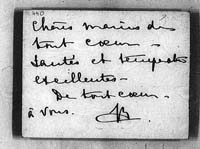 440
Chères marins du
tout cœur -
santés et temperate
excellentes -
De tout cœur -
à vous.